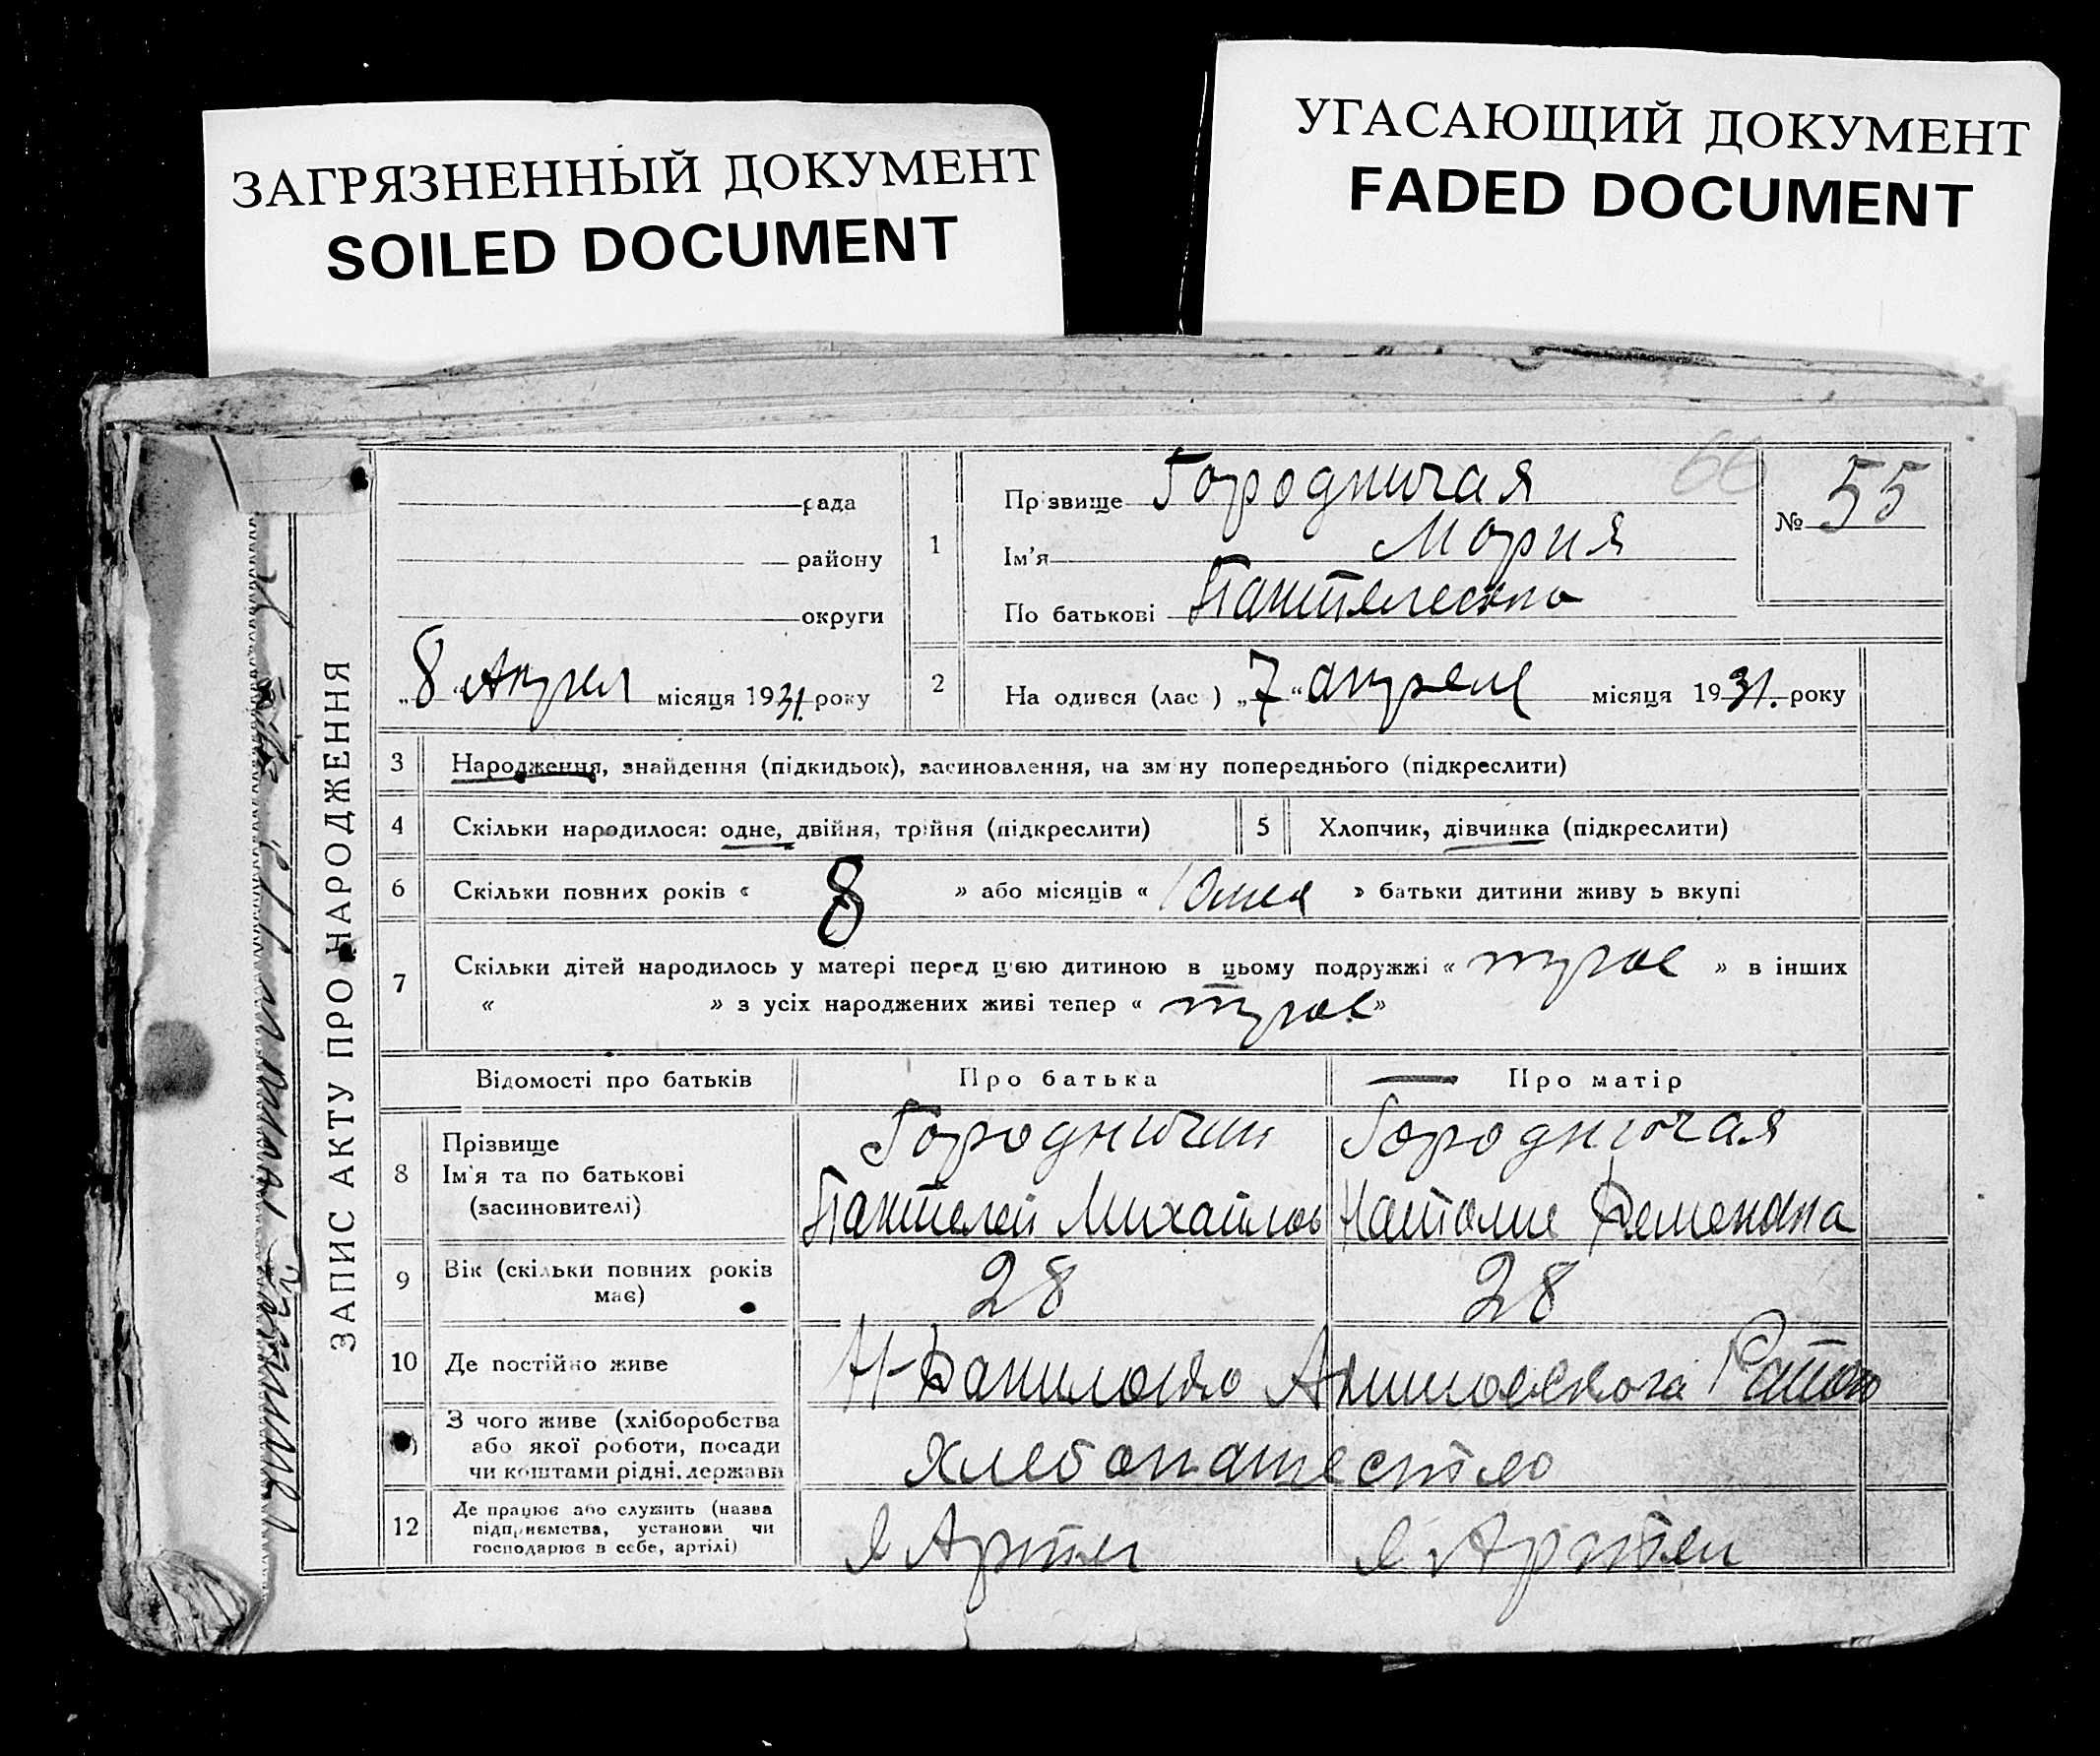 ЗАГРЯЗНЕННЫЙ ДОКУМЕНТ
SOILED DOCUMENT
УГАСАЮЩИЙ ДОКУМЕНТ
FADED DOCUMENT
ЗАПИС АКТУ ПРО НАРОДЖЕННЯ
66
рада
району
округи
„8“ Апрел місяця 1931. року
1
Прізвище Городничая
Ім'я Мария
По батькові
№ 55
2 На одився (лас ) „7“ апреля місяця 1931. року
3 Народження, знайдення (підкидьок), засиновлення, на зм ну попереднього (підкреслити)
4 Скільки народилося: одне, двійня, трійня (підкреслити) 5 Хлопчик, дівчинка (підкреслити)
6 Скільки повних років « 8 » або місяців « » батьки дитини живу ь вкупі
7 Скільки дітей народилось у матері перед цією дитиною в цьому подружжі « трое » в інших
« » з усіх народжених живі тепер « трое »
Відомості про батьків Про батька Про матір
8 Прізвище
Ім'я та по батькові
(засиновителі)
Городничий Городничая
Пантелей Михайлов Наталия
9 Вік (скільки повних років має) 28 28
10 Де постійно живе Н-Даниловко Района
З чого живе (хліборобства
або якої роботи, посади
чи коштами рідні. держави
хлебопашество
12 Де працює або служить (назва
підприємства, установи чи
господарює в себе, артілі)
в Артели в Артели